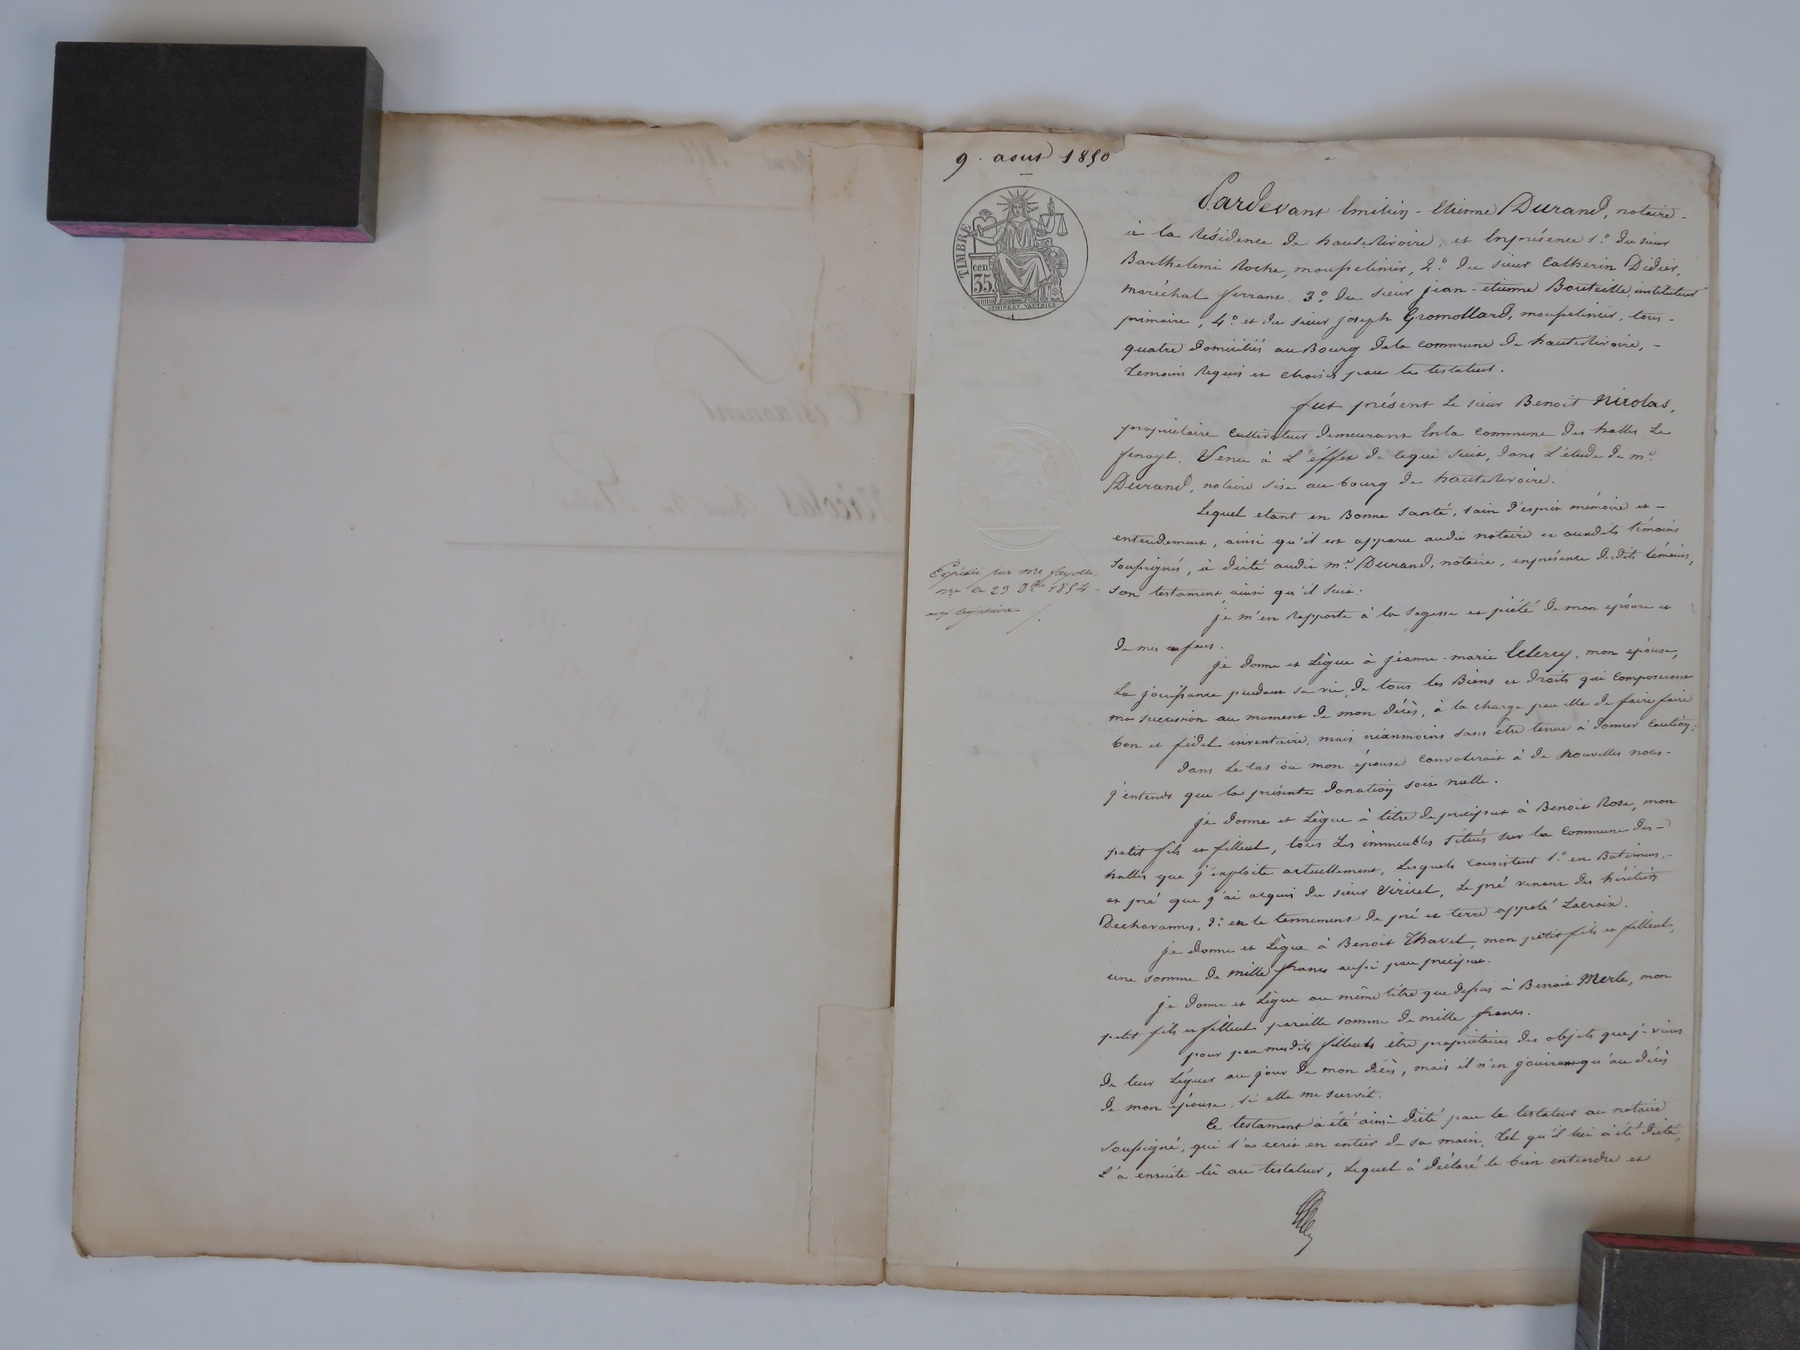 9. aout 1850
TIMBRE
cen.
35.
Pardevant Emilien-Etienne Durand, notaire-
à la Résidence de hauteRivoire, et Enprésence 1.° du sieur
Barthelemi Roche, mousselinier, 2.° du sieur Catherin Didier,
maréchal ferrant, 3.° du sieur jean-etienne Bouteille, instituteur
primaire, 4.° et du sieur joseph Gromollard, mousselinier, tous-
quatre domiciliés au Bourg dela commune de hauteRivoire,-
Temoins Requis et choisis par le testateur.
fut présent Le sieur Benoit Nicolas,
propriétaire Cultivateur demeurant Enla commune des halles Le
fenoyl. Venu à L'éffet de cequi suit, dans L'étude de m.e
Durand, notaire sise au bourg de hauteRivoire.
Lequel etant en Bonne Santé, sain d'esprit mémoire et-
entendement, ainsi qu'il est apparu audit notaire et auxdits témoins
soussignés, à dicté audit m.e Durand, notaire, enprésence desdits témoins,
son testament ainsi qu'il suit:
Expédié par me
le 29 1854
je m'en Rapporte à la sagesse et piété de mon épouse et
de mes enfans.
je donne et Lègue à jeanne-marie Clercy, mon épouse,
La jouissance pendant sa vie, de tous les Biens et droits qui composeront
ma succession au moment de mon décès, à la charge par elle de faire faire
bon et fidel inventaire, mais néanmoins sans être tenue à donner Caution.
dans Le Cas où mon épouse Convolerait à de Nouvelles noces-
j'entends que la présente donation soit nulle.
je donne et Lègue à titre de préciput à Benoit Rose, mon
petit fils et filleul, tous Les immeubles situés sur la Commune des-
halles que j'exploite actuellement, Lesquels consistent 1.° en Batimens,-
et pré que j'ai acquis du sieur Viricel, Le pré venant des héritiers
Dechavannes, 2.° en le tennement de pré et terre appelé Lacroix.
je donne et Lègue à Benoit Thavel, mon petit fils et filleul,
une somme de mille francs aussi par préciput.
je donne et Lègue au même titre que dessus à Benoit Merle, mon
petit fils et filleul pareille somme de mille francs.
pour par mesdits filleuls être propriétaires des objets que je viens
de leur Léguer au jour de mon décès, mais il n'en jouiront qu'au décès
de mon épouse, si elle me survit.
Ce testament à été ainsi dicté par le testateur au notaire
soussigné, qui l'a ecrit en entier de sa main, Tel qu'il lui à été dicté,
L'a ensuite lû au testateur, Lequel à déclaré le bien entendre et